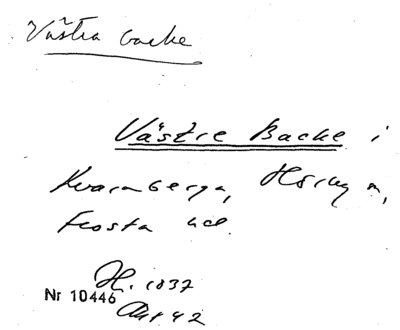 Västra backe
Västre Backe i
Kvarnberga, Hörby sn,
Frosta hd.
H. 1037
Nr 10446
Akt 42